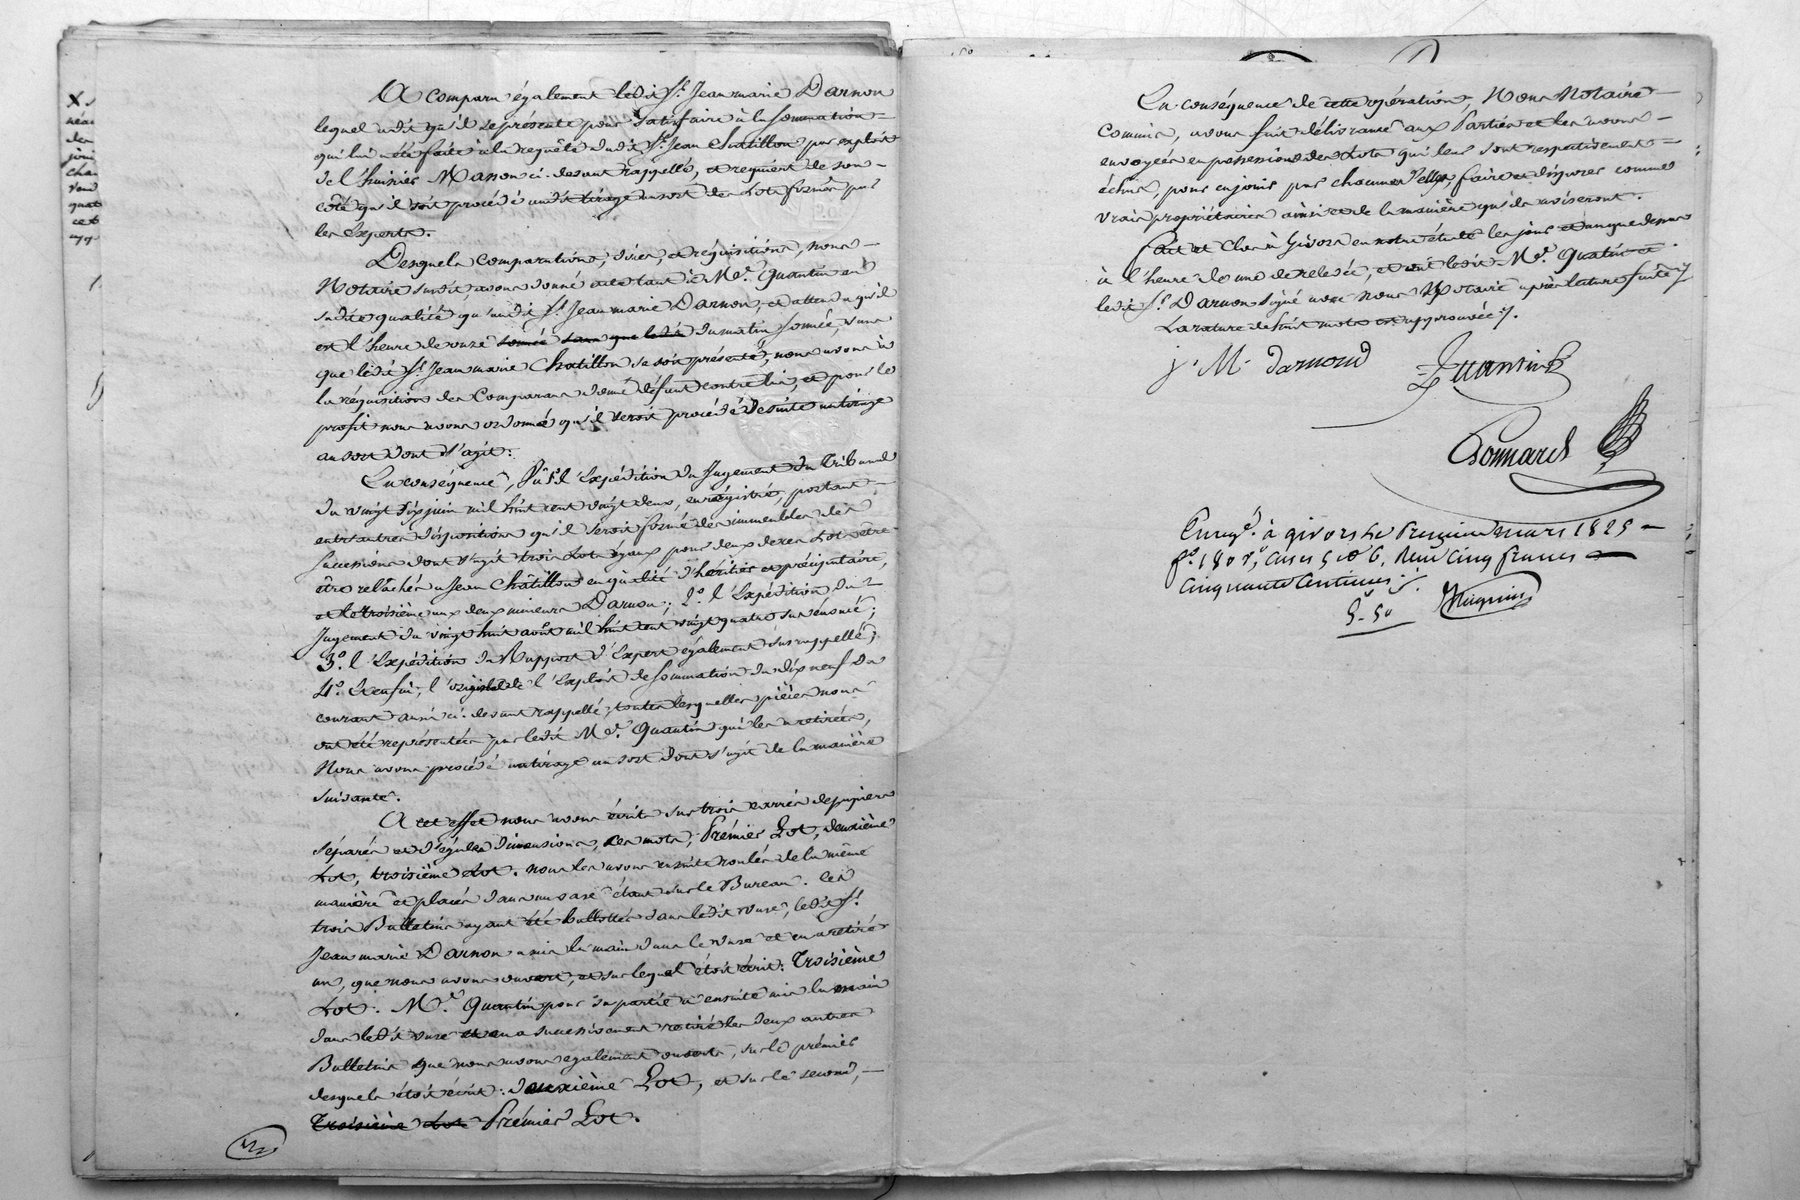 A comparu également ledit Sr. Jean marie Darnon
lequel a dit qu'il se présente pour Satisfaire à la Sommation
qui lui a été faite à la requête dudit Sr. Jean Chatillon par exploit
de l'huissier Masson ci-devant rappellé, et requiert de son
côté qu'il soit procédé audit tirage au sort des Lots formés par
les Experts.
Desquels comparutions, dires, et réquisitions, nous
Notaire susdit, avons donné acte tant à Me. Quantin en
sadite qualité qu'audit Sr. Jean marie Darnon, et attendu qu'il
est l'heure de onze sonnée sans que ledit du matin sonnée, sans
que ledit Sr. Jean marie Chatillon se soit présenté, nous avons à
la réquisition des Comparans donné défaut contre lui, et pour le
profit nous avons ordonné qu'il seroit procédé de suite au tirage
au sort dont s'agit.
En conséquence, Vu 1°. l'Expédition du Jugement du Tribunal
du vingt six juin mil huit cent vingt deux, enregistré, portant
entr'autres dispositions qu'il seroit formé des immeubles des
successions dont s'agit trois Lots égaux pour deux de ces Lots être
être relâchés à Jean Chatillon en qualité d'héritier et préciputaire,
et le troisième aux deux mineurs Darnon; 2°. l'Expédition du
Jugement du vingt huit août mil huit cent vingt quatre susénoncé;
3°. l'Expédition du Rapport d'Expert également susrappellé;
4°. Et enfin, l'original de l'Exploit de Sommation du dix neuf du
courant aussi ci-devant rappellé, toutes lesquelles pièces nous
ont été représentées par ledit Me. Quantin qui les a retirées,
Nous avons procédé au tirage au sort dont s'agit de la manière
suivante.
A cet effet nous avons écrit sur trois carrés de papiers
séparés et d'égales dimensions, ces mots; Prémier Lot, deuxième
Lot, troisième Lot. nous les avons ensuite roulés de la même
manière et placés dans un vase étant sur le Bureau. Ces
trois Bulletins ayant été ballottés dans ledit vase, ledit Sr.
Jean marie Darnon a mis la main dans le vase et en a retiré
un, que nous avons ouvert, et sur lequel étoit écrit: Troisième
Lot. Me. Quantin pour sa partie a ensuite mis la main
dans ledit vase et en a successivement retiré les deux autres
Bulletins que nous avons également ouverts, sur le prémier
desquels étoit écrit: deuxième Lot, et sur le second,
Troisième Lot Prémier Lot.
En conséquence de cette opération, Nous Notaire
commis, avons fait délivrance aux Parties et les avons
envoyées en possession des Lots qui leur sont respectivement
échus, pour en jouir par chacune d'elles, faire et disposer comme
vrais propriétaires ainsi et de la manière qu'ils aviseront.
Fait et Clos à Givors en notre étude les jour et an que dessus
à l'heure de une de relevée, et ont ledit Me. Quantin et
ledit Sr. Darnon signé avec nous Notaire après lecture faite
La rature de huit mots est approuvée.
j. M. darnond
Quantin
Bonnard
Enregé. à givors le Premier mars 1825
f°. 180 r°, cases 5 et 6, Reçu Cinq francs
cinquante Centimes.
5. 50